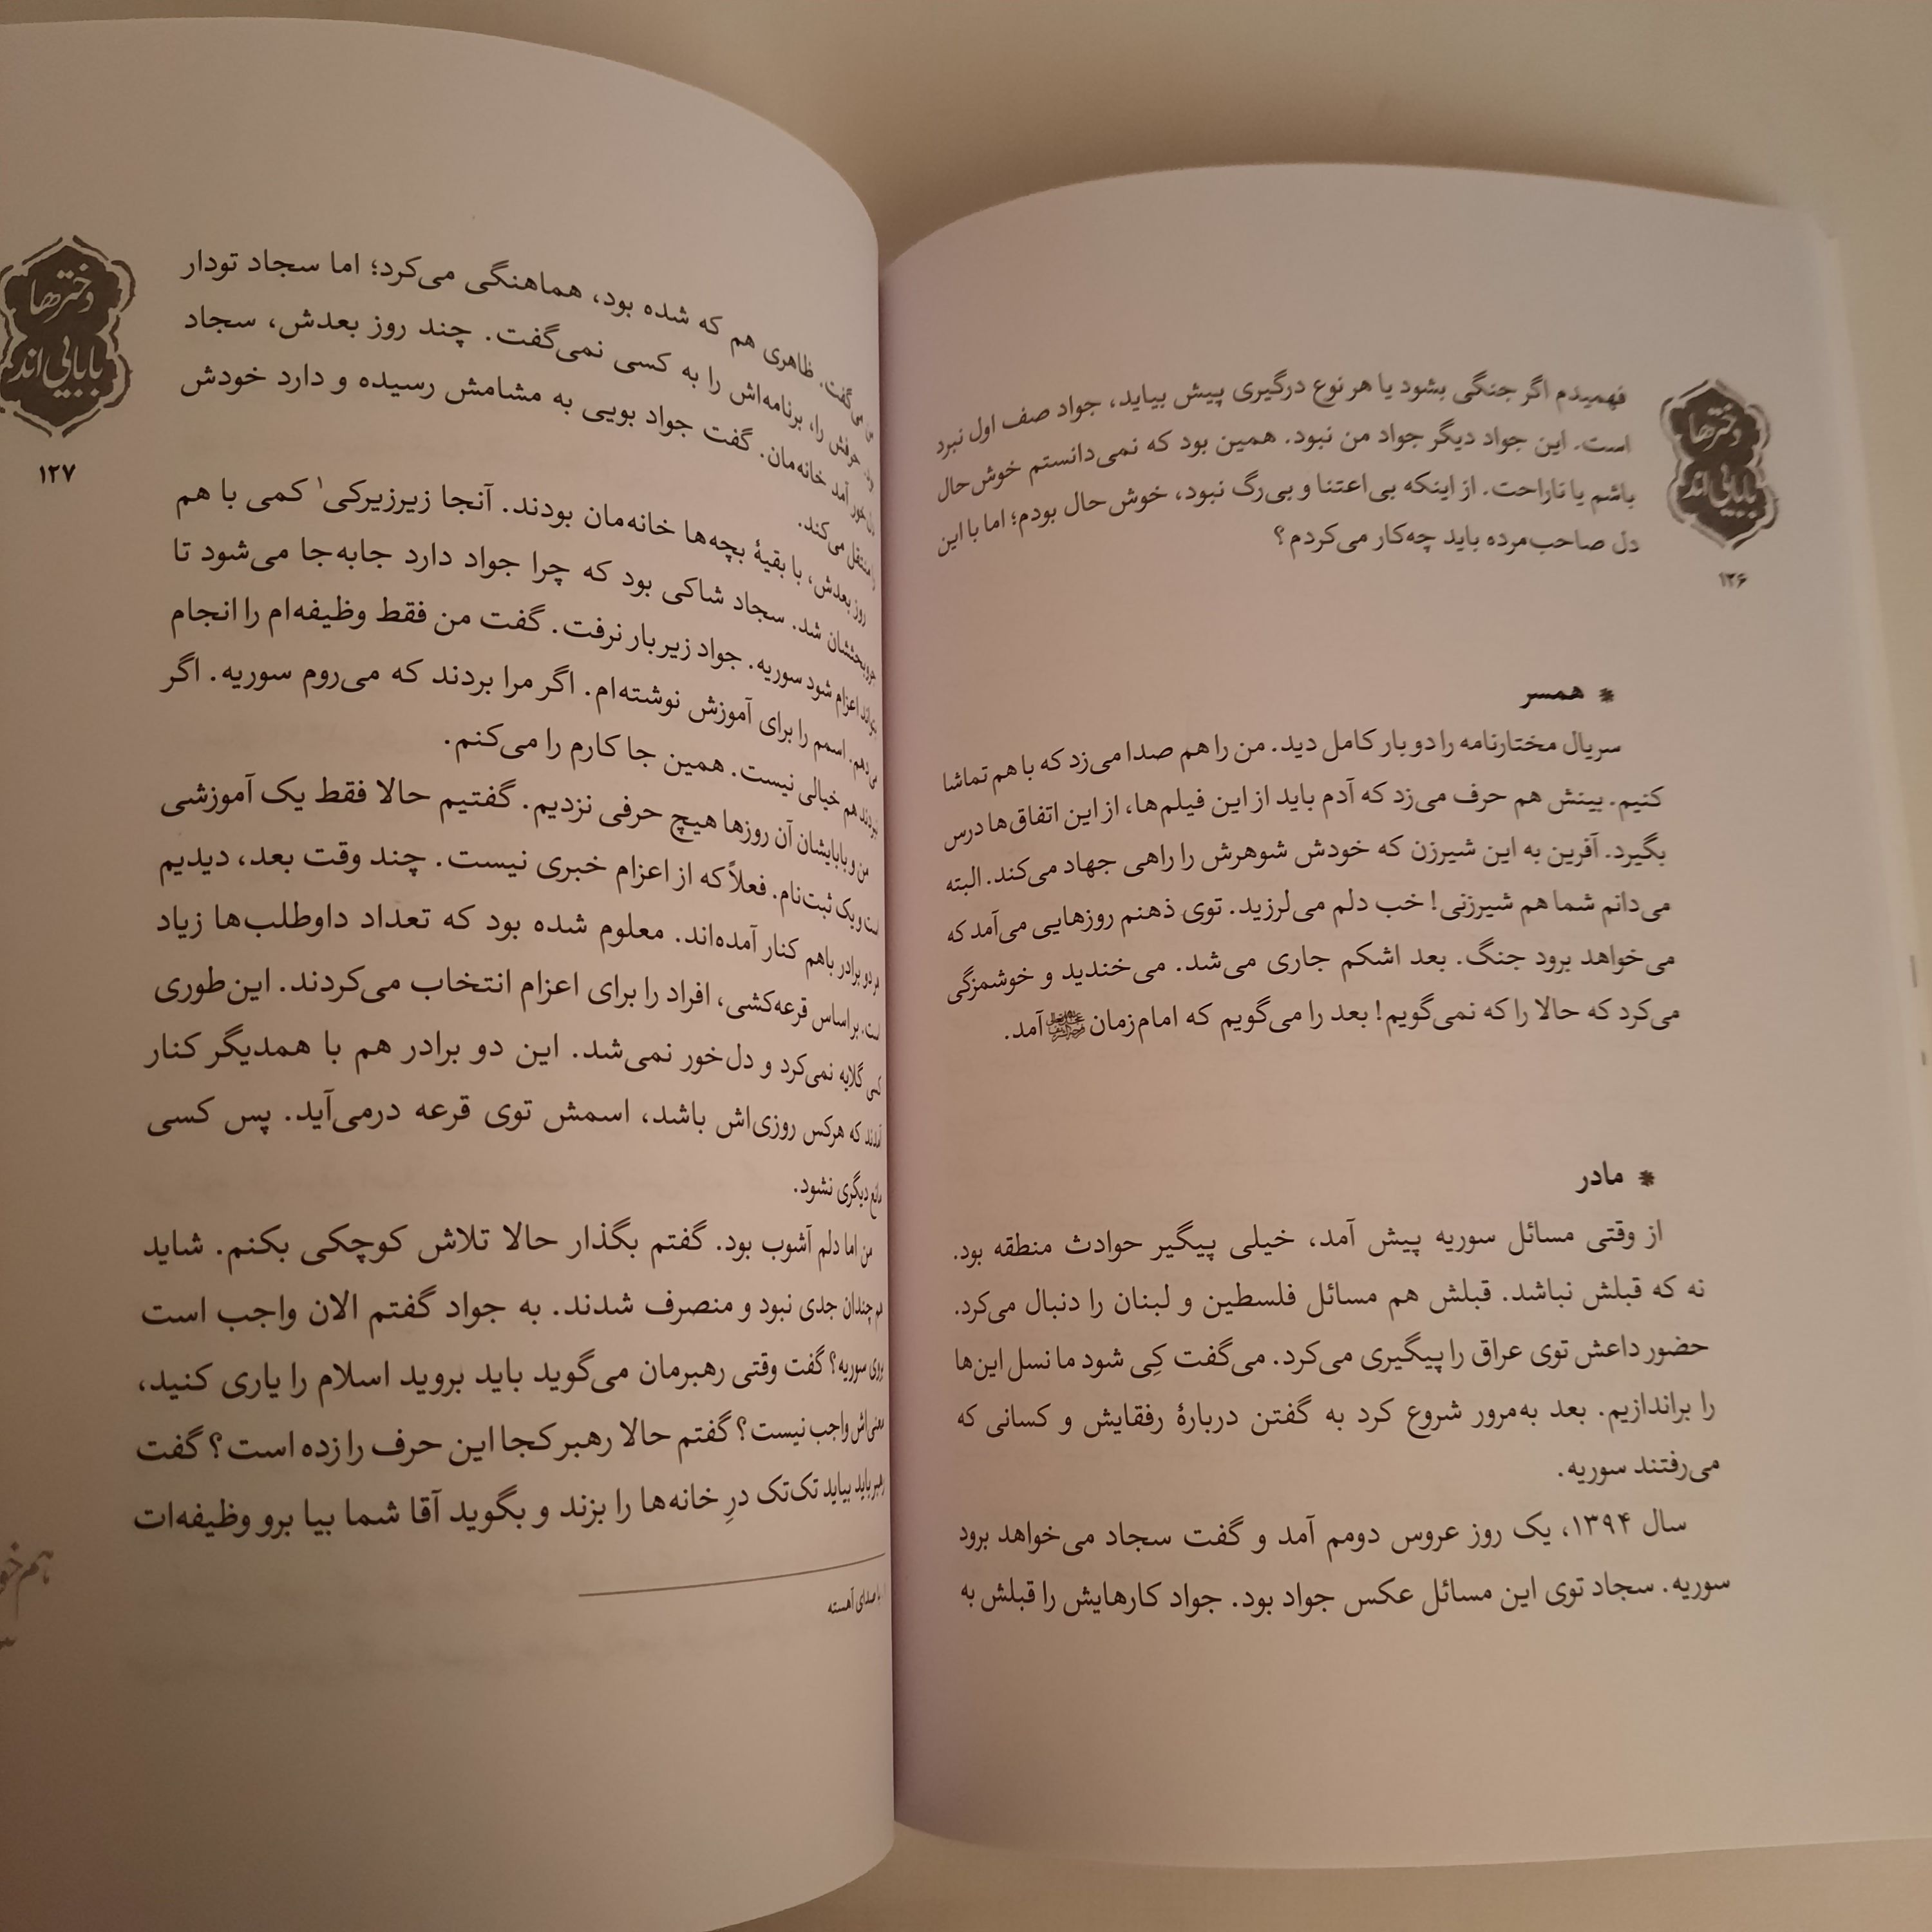 دخترها
بابایی‌اند
۱۲۶
فهمیدم اگر جنگی بشود یا هر نوع درگیری پیش بیاید، جواد صف اول نبرد
است. این جواد دیگر جواد من نبود. همین بود که نمی‌دانستم خوش‌حال
باشم یا ناراحت. از اینکه بی‌اعتنا و بی‌رگ نبود، خوش‌حال بودم؛ اما با این
دل صاحب‌مرده باید چه‌کار می‌کردم؟
* همسر
سریال مختارنامه را دو بار کامل دید. من را هم صدا می‌زد که با هم تماشا
کنیم. بینش هم حرف می‌زد که آدم باید از این فیلم‌ها، از این اتفاق‌ها درس
بگیرد. آفرین به این شیرزن که خودش شوهرش را راهی جهاد می‌کند. البته
می‌دانم شما هم شیرزنی! خب دلم می‌لرزید. توی ذهنم روزهایی می‌آمد که
می‌خواهد برود جنگ. بعد اشکم جاری می‌شد. می‌خندید و خوشمزگی
می‌کرد که حالا را که نمی‌گویم! بعد را می‌گویم که امام‌زمان آمد.
* مادر
از وقتی مسائل سوریه پیش آمد، خیلی پیگیر حوادث منطقه بود.
نه که قبلش نباشد. قبلش هم مسائل فلسطین و لبنان را دنبال می‌کرد.
حضور داعش توی عراق را پیگیری می‌کرد. می‌گفت کِی شود ما نسل این‌ها
را براندازیم. بعد به‌مرور شروع کرد به گفتن دربارهٔ رفقایش و کسانی که
می‌رفتند سوریه.
سال ۱۳۹۴، یک روز عروس دومم آمد و گفت سجاد می‌خواهد برود
سوریه. سجاد توی این مسائل عکس جواد بود. جواد کارهایش را قبلش به
دخترها
بابایی‌اند
۱۲۷
می‌گفت. ظاهری هم که شده بود، هماهنگی می‌کرد؛ اما سجاد تودار
حرفش را، برنامه‌اش را به کسی نمی‌گفت. چند روز بعدش، سجاد
آمد خانه‌مان. گفت جواد بویی به مشامش رسیده و دارد خودش
منتقل می‌کند.
روز بعدش، با بقیهٔ بچه‌ها خانه‌مان بودند. آنجا زیرزیرکی۱ کمی با هم
جروبحثشان شد. سجاد شاکی بود که چرا جواد دارد جابه‌جا می‌شود تا
بتواند اعزام شود سوریه. جواد زیر بار نرفت. گفت من فقط وظیفه‌ام را انجام
می‌دهم. اسمم را برای آموزش نوشته‌ام. اگر مرا بردند که می‌روم سوریه. اگر
نبردند هم خیالی نیست. همین جا کارم را می‌کنم.
من و بابایشان آن روزها هیچ حرفی نزدیم. گفتیم حالا فقط یک آموزشی
است و یک ثبت‌نام. فعلاً که از اعزام خبری نیست. چند وقت بعد، دیدیم
هر دو برادر باهم کنار آمده‌اند. معلوم شده بود که تعداد داوطلب‌ها زیاد
است. براساس قرعه‌کشی، افراد را برای اعزام انتخاب می‌کردند. این‌طوری
کسی گلایه نمی‌کرد و دل‌خور نمی‌شد. این دو برادر هم با همدیگر کنار
آمدند که هرکس روزی‌اش باشد، اسمش توی قرعه درمی‌آید. پس کسی
مانع دیگری نشود.
من اما دلم آشوب بود. گفتم بگذار حالا تلاش کوچکی بکنم. شاید
هم چندان جدی نبود و منصرف شدند. به جواد گفتم الان واجب است
بروی سوریه؟ گفت وقتی رهبرمان می‌گوید باید بروید اسلام را یاری کنید،
معنی‌اش واجب نیست؟ گفتم حالا رهبر کجا این حرف را زده است؟ گفت
رهبر باید بیاید تک‌تک درِ خانه‌ها را بزند و بگوید آقا شما بیا برو وظیفه‌ات
۱. با صدای آهسته